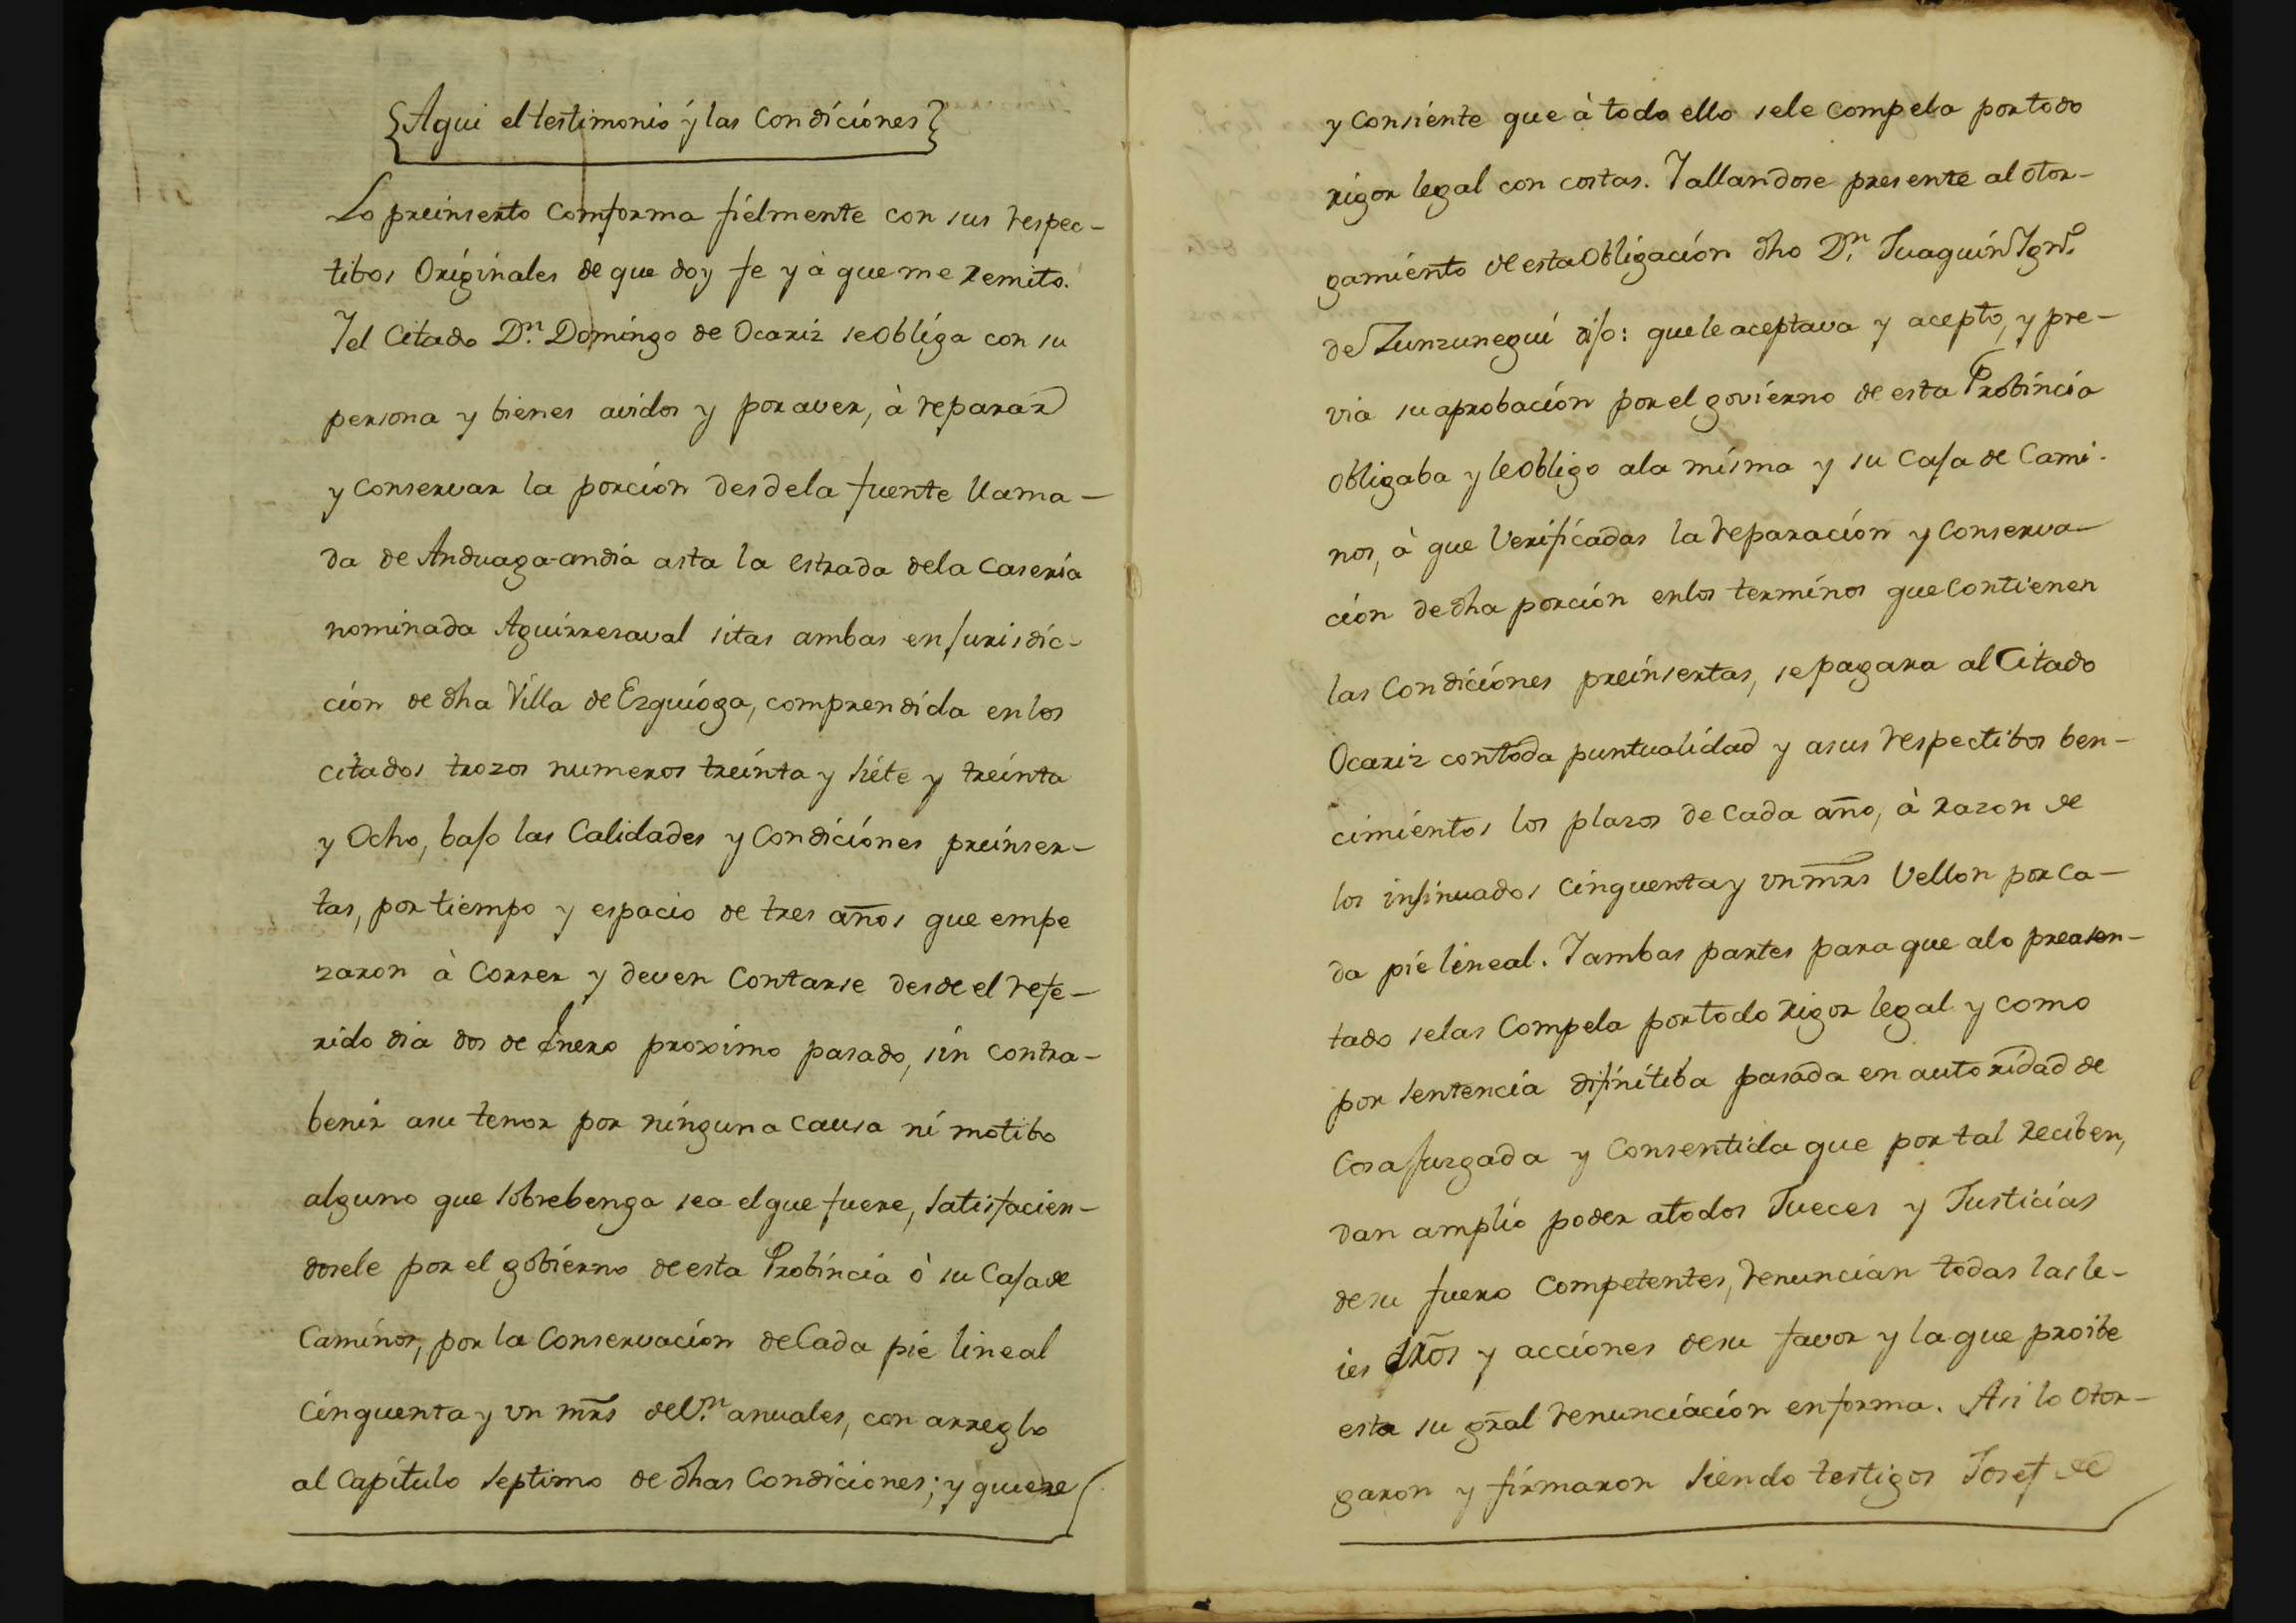 {Aqui el testimonio y las Condiciones}
Lo preinserto comforma fielmente con sus respec-
tibos Originales de que doy fe y à que me remito.
Y el Citado Dn. Domingo de Ocariz se obliga con su
persona y bienes avidos y por aver, à reparar
y conservar la porción desde la fuente llama-
da de Anduaga-andia asta la estrada de la caseria
nominada Aguirresaval sitas ambas en jurisdic-
ción de dha Villa de Ezquioga, comprendida en los
citados trozos numeros treinta y siete y treinta
y Ocho, bajo las Calidades y Condiciones preinser-
tas, por tiempo y espacio de tres años que empe
zaron à Correr y deven Contarse desde el refe-
rido dia dos de Enero proximo pasado, sin contra-
benir a su tenor por ninguna causa ni motibo
alguno que sobrebenga sea el que fuere, satisfacien-
dosele por el gobierno de esta Probincia ò su Casa de
Caminos, por la Conservacion de Cada pie lineal
Cinquenta y un mrs de Vn. anuales, con arreglo
al Capitulo septimo de dhas Condiciones; y quiere
y consiente que à todo ello se le compela por todo
rigor legal con costas. Y allandose presente al otor-
gamiento de esta Obligación dho Dn. Juaquin Ign.º
de Zunzunegui dijo: que le aceptava y acepto, y pre-
via su aprobación por el govierno de esta Probincia
obligaba y le Obligo a la misma y su Casa de Cami-
nos, à que Verificadas la reparación y Conserva-
ción de dha porción en los terminos que Contienen
las Condiciones preinsertas, se pagara al Citado
Ocariz con toda puntualidad y a sus respectibos ben-
cimientos los plazos de Cada año, à razon de
los insinuados Cinquenta y un mrs Vellon por Ca-
da pie lineal. Y ambas partes para que a lo preasen-
tado se las Compela por todo rigor legal y como
por sentencia difinitiba pasada en autoridad de
Cosa juzgada y Consentida que por tal reciben,
dan amplio poder a todos Jueces y Justicias
de su fuero Competentes, renuncian todas las le-
ies dros y acciones de su favor y la que proibe
esta su gral renunciación en forma. Asi lo Otor-
garon y firmaron siendo testigos Josef de